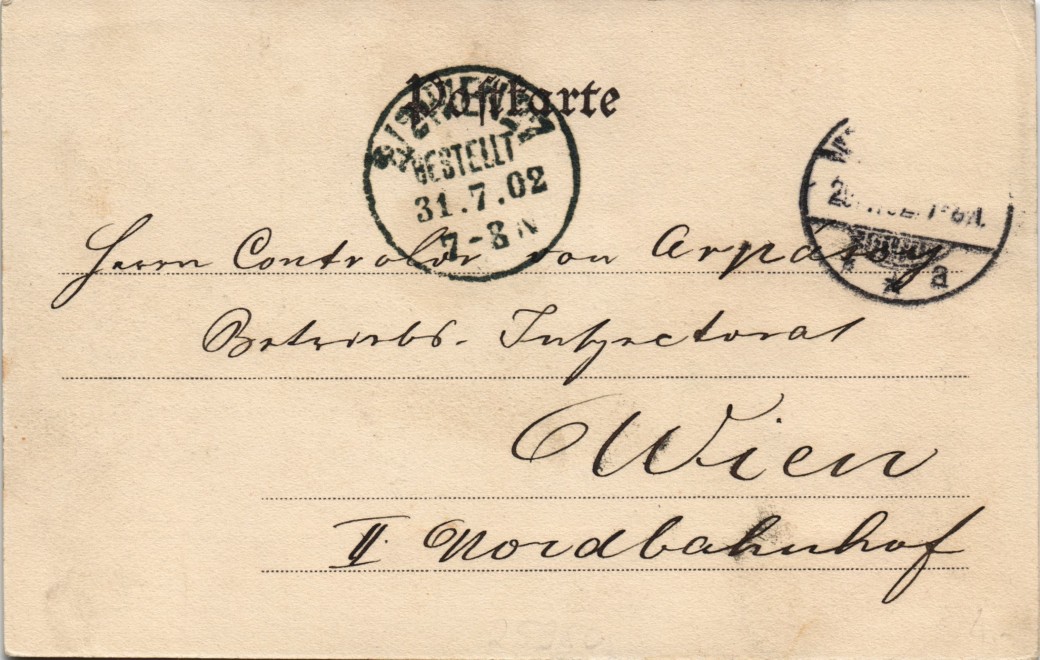 Postkarte
BESTELLT
31.7.02
7-8 N
a
Herrn Controlor von Arpásy
Betriebs-Inspectorat
Wien
II Nordbahnhof